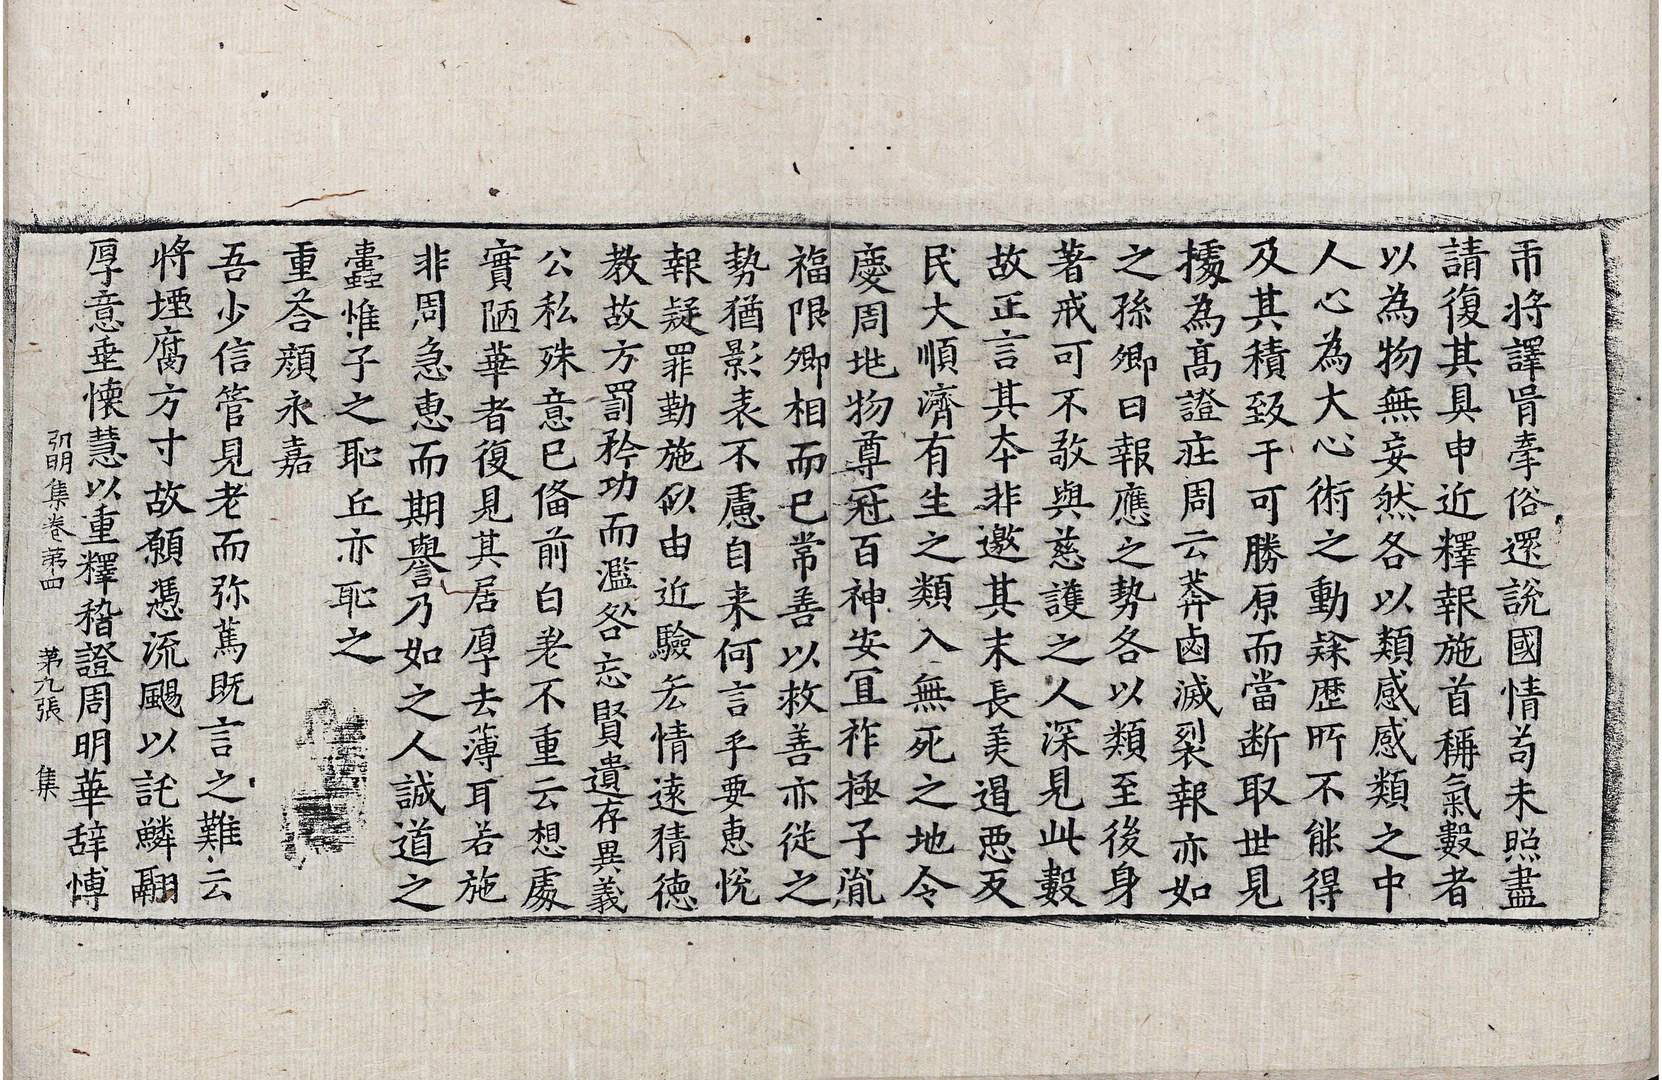 帀將譯胥牽俗還說國情苟未照盡
請復其具申近釋報施首稱氣數者
以為物無妄然各以類感感類之中
人心為大心術之動䟽歷所不能得
及其積致于可勝原而當断取世見
據為高證莊周云莾鹵滅裂報亦如
之孫卿曰報應之勢各以類至後身
著戒可不敬與慈護之人深見此數
故正言其本非邀其末長美遏惡反
民大順濟有生之類入無死之地令
慶周地物尊冠百神安冝祚極子胤
福限卿相而已常善以救善亦從之
勢猶影表不慮自来何言乎要恵悅
報疑罪勤施似由近驗吝情遠猜德
教故方罰矜功而濫咎忘賢遺存異義
公私殊意已俻前白老不重云想處
實陋華者復見其居厚去薄耳若施
非周急恵而期譽乃如之人誠道之
蠹惟子之恥丘亦恥之
重荅顔永嘉
吾少信管見老而弥篤既言之難云
將堙腐方寸故願憑流颺以託鱗翮
厚意垂懐慧以重釋稽證周明華辞博
弘明集卷第四　第九張　集